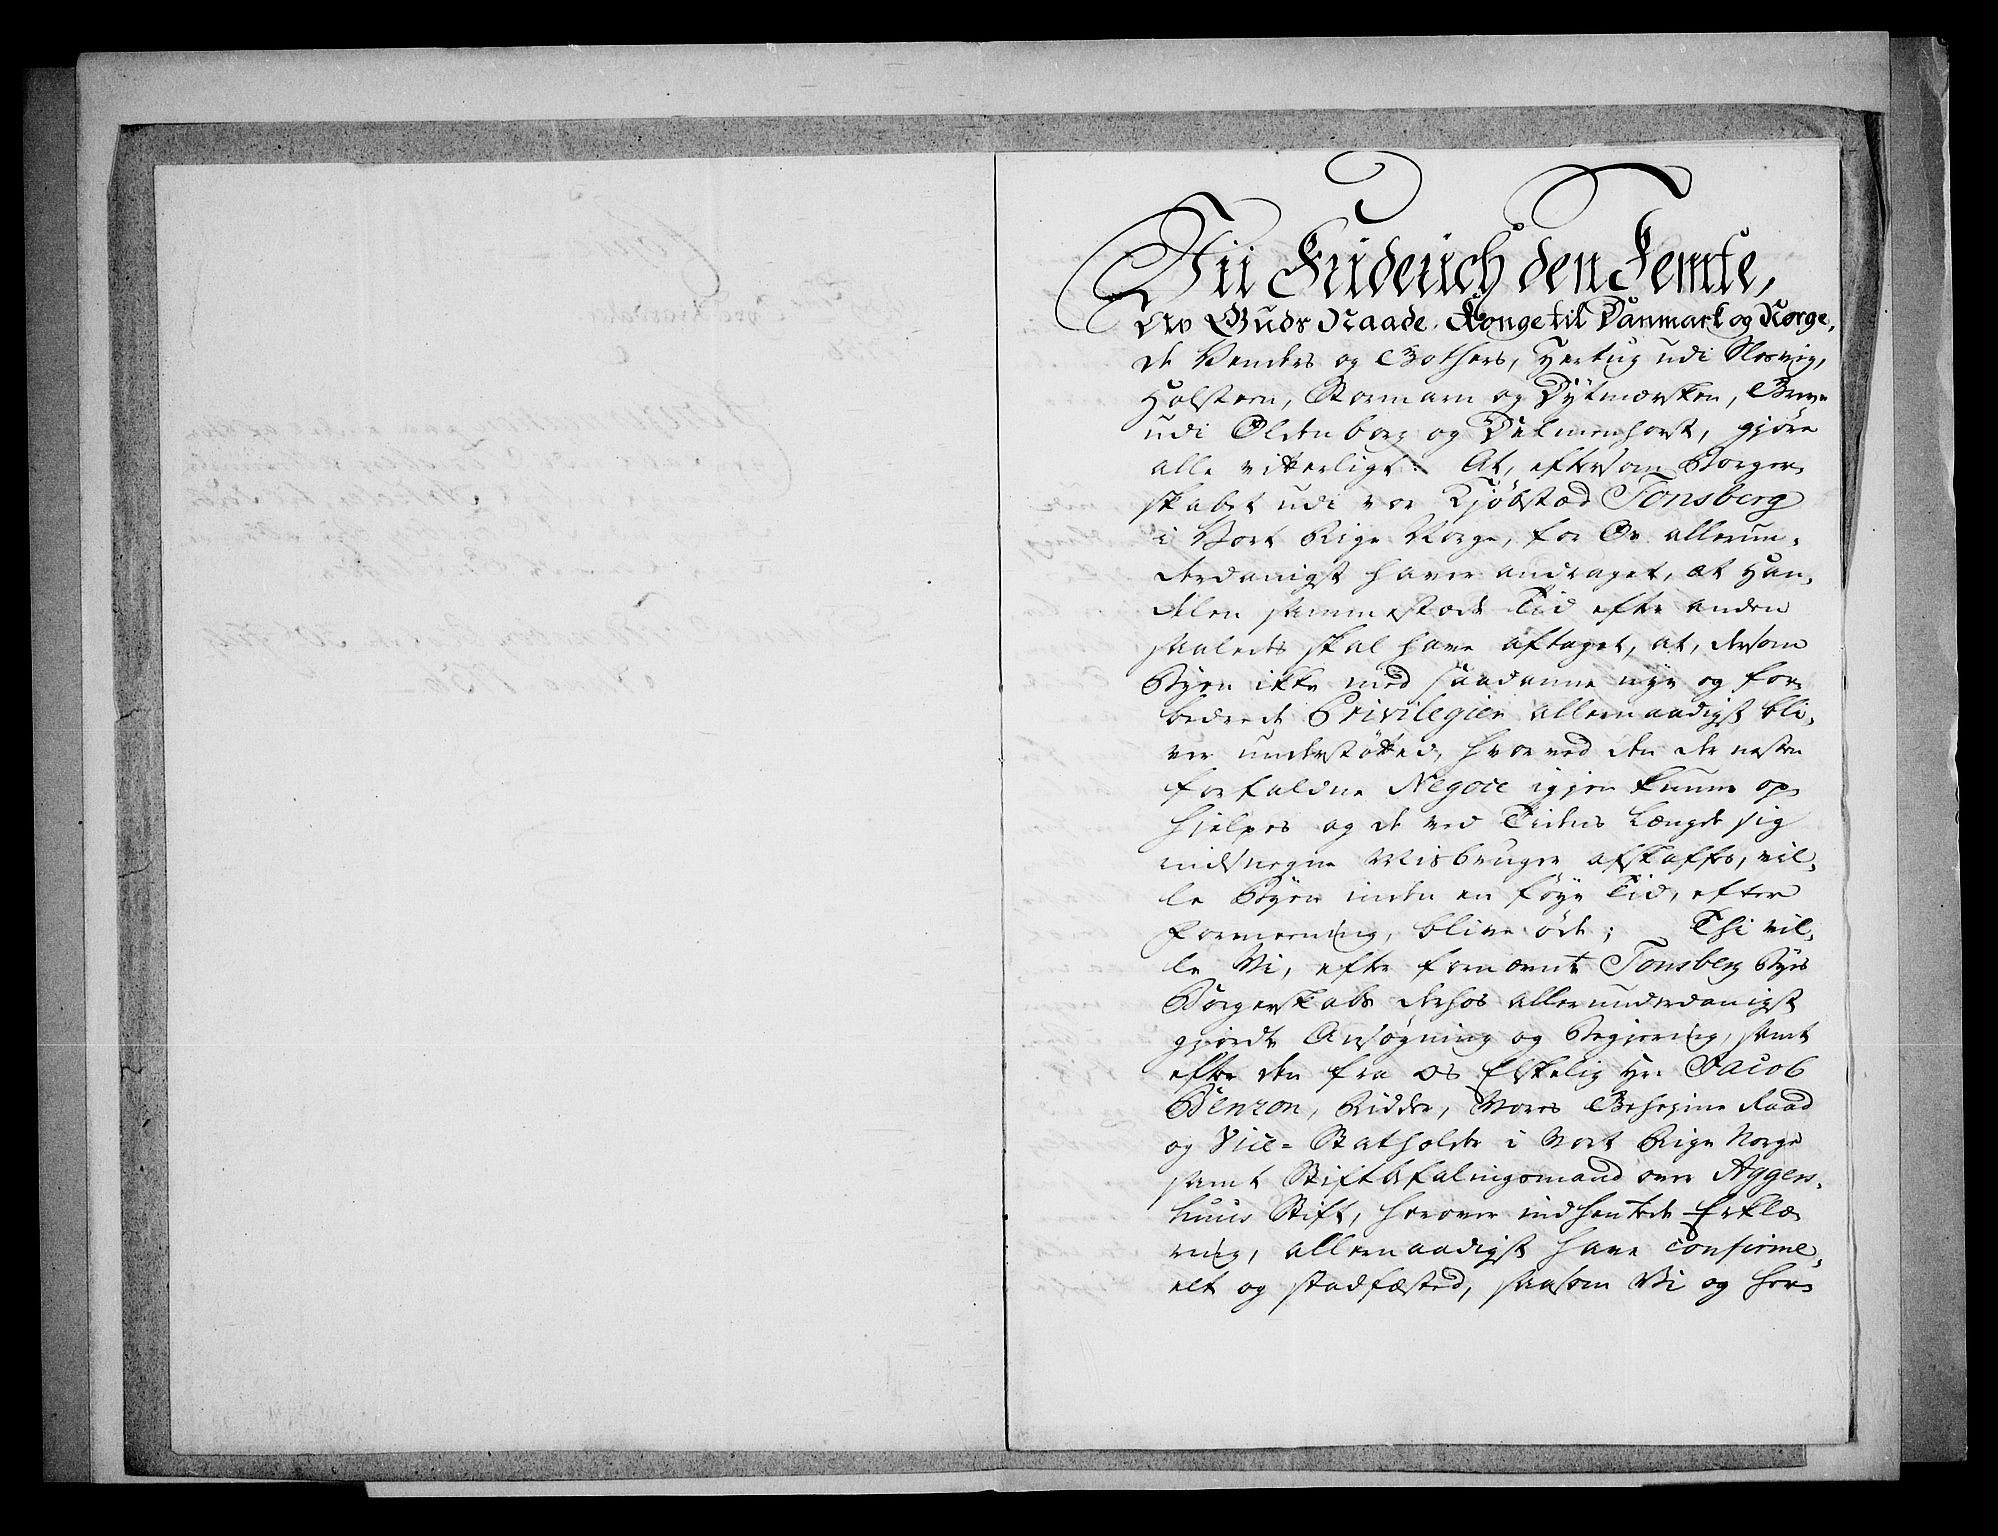 Vii Friderich den Femte,
Av Guds Naade, Konge til Danmark og Norge,
de Venders og Gothers, Hertug udi Slesvig,
Holsteen, Stormarn og Dytmersken, Greve
udi Oldenborg og Delmenhorst, gjøre
alle vitterligt: At, eftersom Borger-
skabet udi vor Kjøbstæd Tonsberg
i Vort Rige Norge, for Os allerun-
derdanigst haver andraget, at Han-
delen sammestæds Tid efter anden
saaledes skal have aftaget, at, dersom
Byen ikke med saadanne nye og for-
bedrede Privilegier allernaadigst bli-
ver understøtted, hvorved den der nesten
forfaldne Negoce igjen kunne op-
hjelpes og de ved Tidens Længde sig
indsnegne Misbruger afskaffes, vil-
le Byen inden en føye Tid, efter
Formeening, blive øde; Thi vil-
le Vi, efter fornævnte Tonsberg Byes
Borgerskabs derhos allerunderdanigst
giorde Ansøgning og Begjering, samt
efter den fra os Elskelig Hr. Jacob
Benzon, Ridder, Vores Geheime Raad
og Vice-Statholder i Vort Rige Norge
samt Stiftbefalingsmand over Aggers-
huus Stift, herover indhentede Erklæ-
ring, allernaadigst have confirme-
ret og stadfæsted, saasom Vi og her-